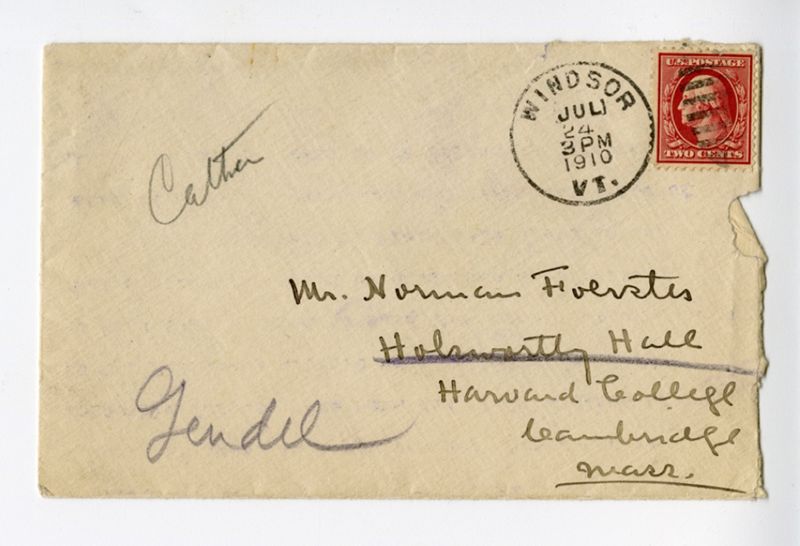 U.S. POSTAGE
TWO CENTS
WINDSOR
JUL
24
3 PM
1910
VT.
Cather
Mr. Norman Foerster
Holsworthy Hall
Harvard College
Cambridge
Mass.